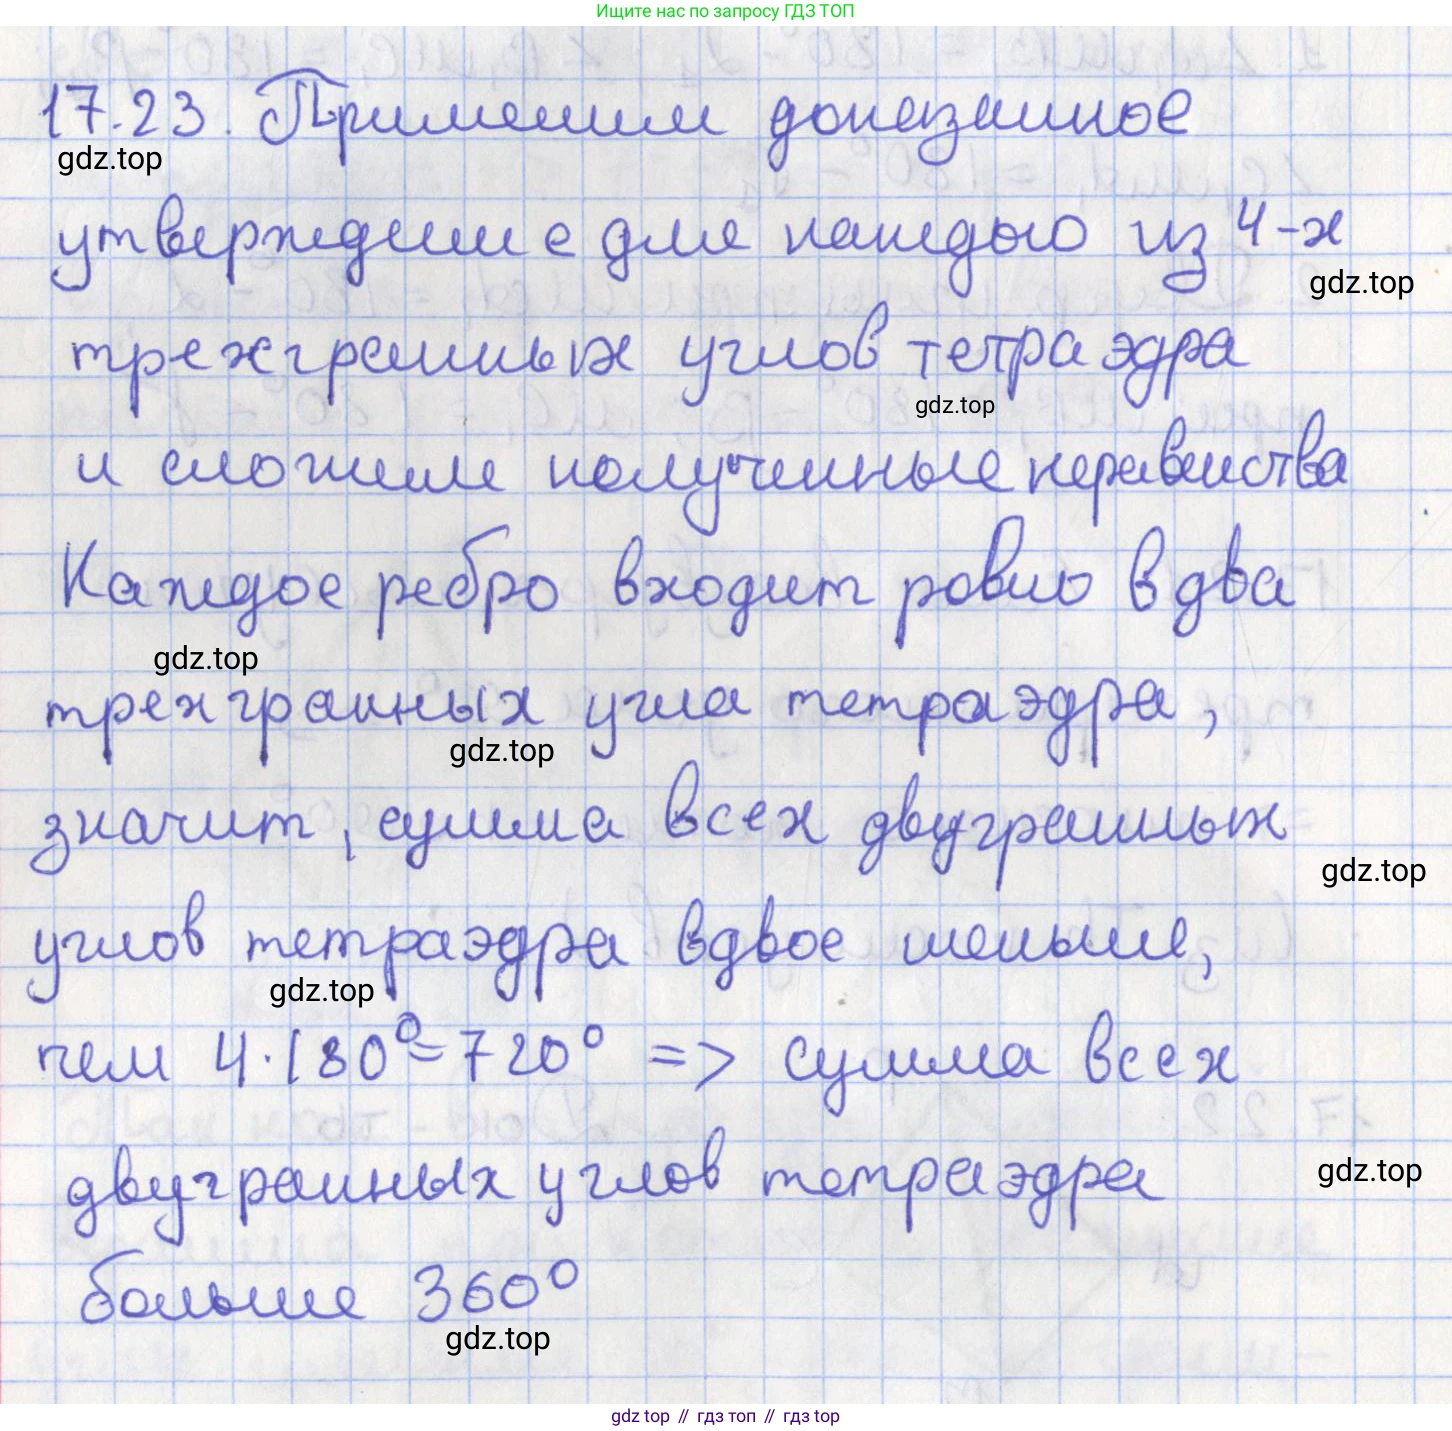 Ищите нас по запросу ГДЗ ТОП
17.23. Применим доказанное
gdz.top
утверждение для каждого из 4-х
gdz.top
трехгранных углов тетраэдра
gdz.top
и сложим полученные неравенства
Каждое ребро входит ровно в два
gdz.top
трехгранных угла тетраэдра,
gdz.top
значит, сумма всех двугранных
gdz.top
углов тетраэдра вдвое меньше,
gdz.top
чем 4·180°=720° => сумма всех
двугранных углов тетраэдра
gdz.top
больше 360°
gdz.top
gdz top // гдз топ // гдз top